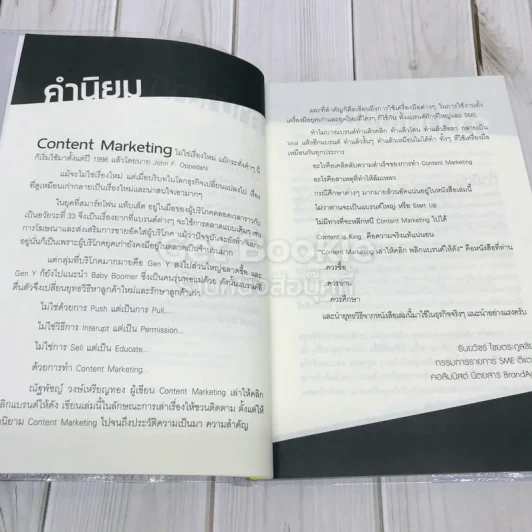 คำนิยม
Content Marketing ไม่ใช่เรื่องใหม่ แม้กระทั่งคำๆ นี้
ก็เริ่มใช้มาตั้งแต่ปี 1996 แล้วโดยนาย John F. Oppedahl
แม้จะไม่ใช่เรื่องใหม่ แต่เมื่อบริบทในโลกธุรกิจเปลี่ยนแปลงไป เรื่อง
ที่ดูเหมือนเก่ากลายเป็นเรื่องใหม่และน่าสนใจเอามากๆ
ในยุคที่สมาร์ทโฟน แท็บเล็ต อยู่ในมือของผู้บริโภคตลอดเวลาราวกับ
เป็นอวัยวะที่ 33 จึงเป็นเรื่องยากที่แบรนด์ต่างๆ จะใช้การตลาดแบบเดิมๆ เช่น
การโฆษณาและส่งเสริมการขายอัดใส่ผู้บริโภค แม้ว่าปัจจุบันจะยังทำกันมาก
อยู่นั่นก็เป็นเพราะผู้บริโภคยุคเก่ายังคงมีอยู่ในตลาดเป็นจำนวนมาก
แต่กลุ่มที่บริโภคมากมายคือ Gen Y ลงไปส่วนใหญ่ฉลาดซื้อ และ
Gen Y ก็ยังไปแนะนำ Baby Boomer ซึ่งเป็นคนรุ่นพ่อแม่ด้วย ดังนั้นแบรนด์ที่
ตื่นตัวจึงเปลี่ยนยุทธวิธีหาลูกค้าใหม่และรักษาลูกค้าเก่า
ไม่ใช่ด้วยการ Push แต่เป็นการ Pull...
ไม่ใช่วิธีการ Interupt แต่เป็น Permission...
ไม่ใช่การ Sell แต่เป็น Educate...
ด้วยการทำ Content Marketing...
ณัฐพัชญ์ วงษ์เหรียญทอง ผู้เขียน Content Marketing เล่าให้คลิก
พลิกแบรนด์ให้ดัง เขียนเล่มนี้ในลักษณะการเล่าเรื่องให้ชวนติดตาม ตั้งแต่ให้
นิยาม Content Marketing ไปจนถึงประวัติความเป็นมา ความสำคัญ
และที่สำคัญก็คือเขียนถึงการใช้เครื่องมือต่างๆ ในการใช้งานทั้ง
เครื่องมือยุคเก่าและยุคใหม่ที่ใครๆ ก็ใช้กัน ทั้งแบรนด์ยักษ์ใหญ่และ SME
ทำไมบางแบรนด์ทำแล้วคลิก ทำแล้วโดน ทำแล้วฮือฮา กลายเป็น
Viral แล้วอีกแบรนด์ ทำแล้วแป้ก ทำแล้วเหมือนไม่ได้ทำ ทั้งๆ ที่ใช้เครื่องมือ
เหมือนกันทุกประการ
อะไรคือเคล็ดลับความสำเร็จของการทำ Content Marketing
อะไรคือสาเหตุที่ทำให้ล้มเหลว
กรณีศึกษาต่างๆ มากมายล้วนอัดแน่นอยู่ในหนังสือเล่มนี้
ไม่ว่าท่านจะเป็นแบรนด์ใหญ่ หรือ Start Up
ไม่มีทางที่จะหลีกหนี Content Marketing ไปได้
Content is King... คือความจริงแท้แน่นอน
"Content Marketing เล่าให้คลิก พลิกแบรนด์ให้ดัง" คือหนังสือที่ท่าน
...ควรซื้อ
...ควรอ่าน
...ควรศึกษา
และนำยุทธวิธีจากหนังสือเล่มนี้มาใช้ในธุรกิจจริงๆ แนะนำอย่างแรงครับ
ธันยวัชร์ ไชยตระกูลชัย
กรรมการรายการ SME ตีแตก
คอลัมนิสต์ นิตยสาร BrandAge